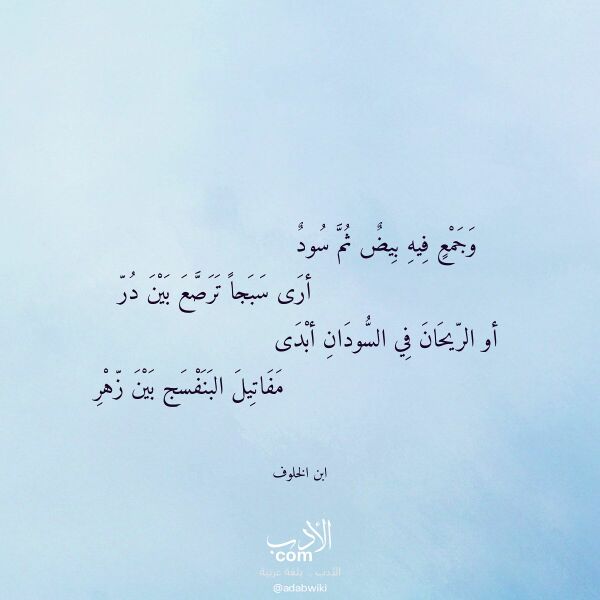 وَجَمْعٍ فِيهِ بِيضٌ ثُمَّ سُودٌ
أرَى سَبَجاً تَرَصَّعَ بَيْنَ دُرّ
أو الرّيحَانَ فِي السُّودَانِ أبْدَى
مَفَاتِيلَ البَنَفْسَج بَيْنَ زّهْرِ
ابن الخلوف
الأدب
com
الأدب .. بلغة عربية
@adabwiki